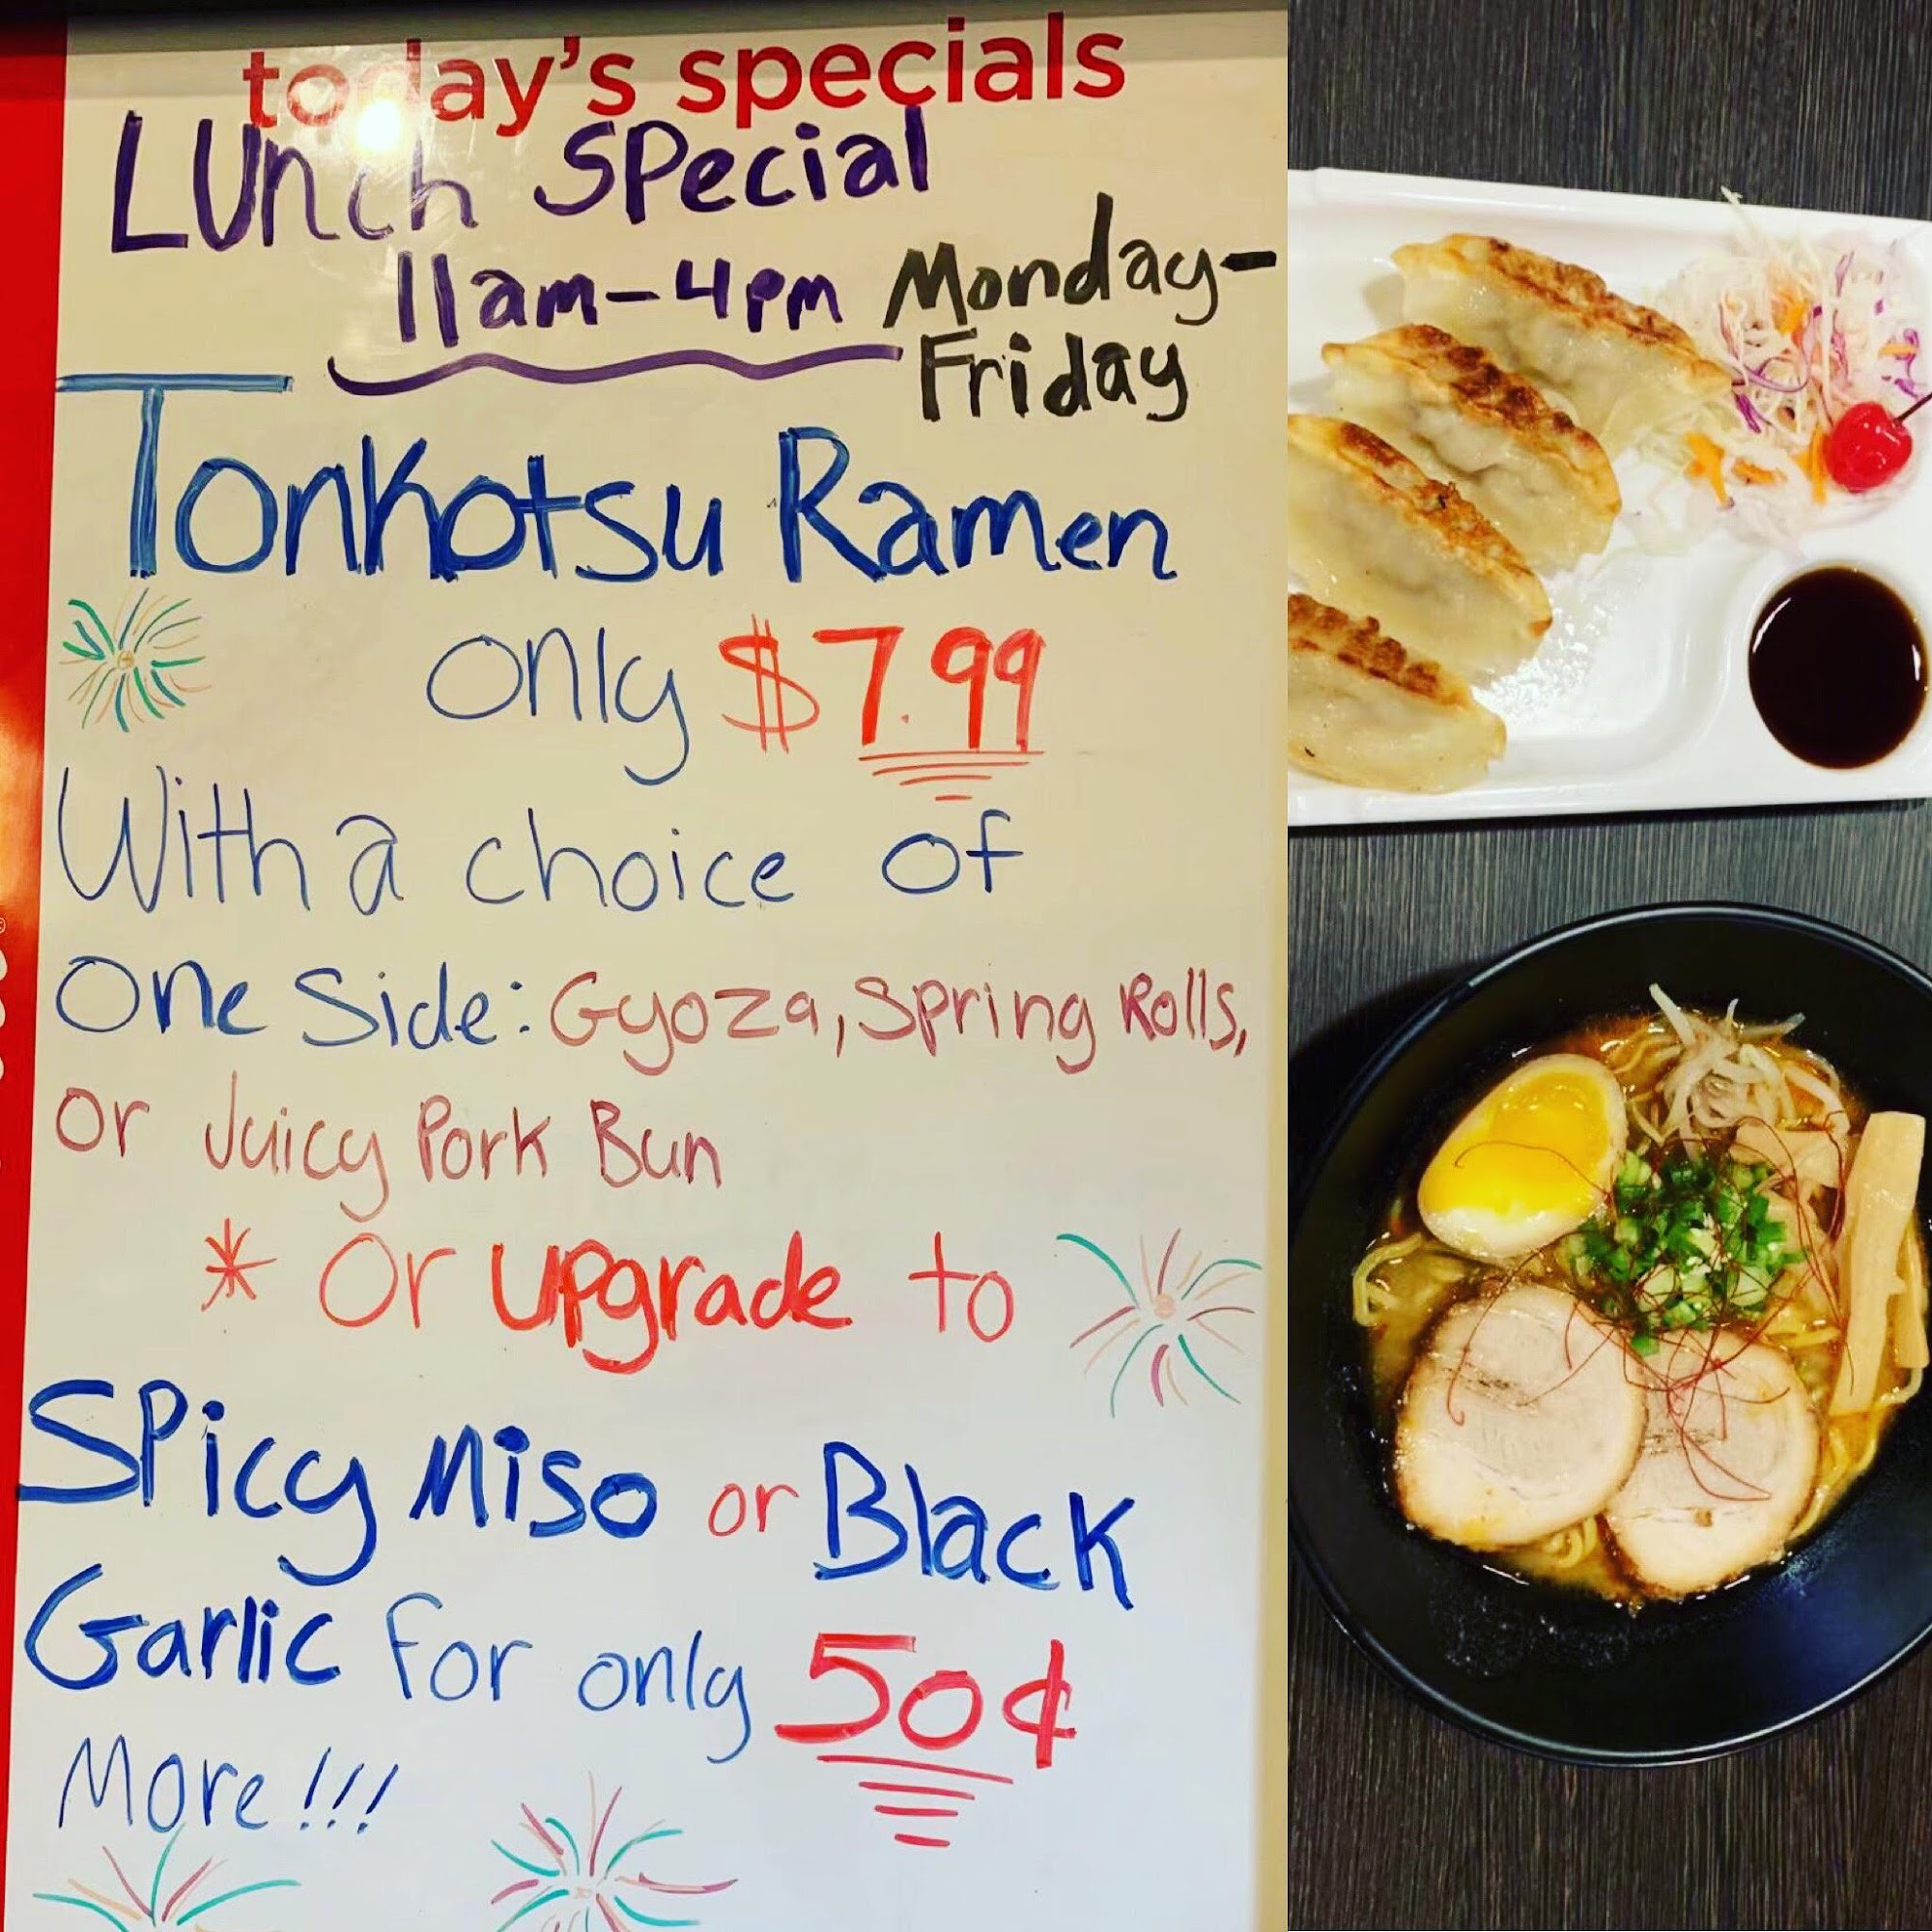 today's specials
Lunch Special
11am-4pm Monday-
Friday
Tonkotsu Ramen
only $7.99
With a choice of
One Side: Gyoza, Spring Rolls,
or Juicy Pork Bun
* Or upgrade to
Spicy Miso or Black
Garlic for only 50¢
More!!!